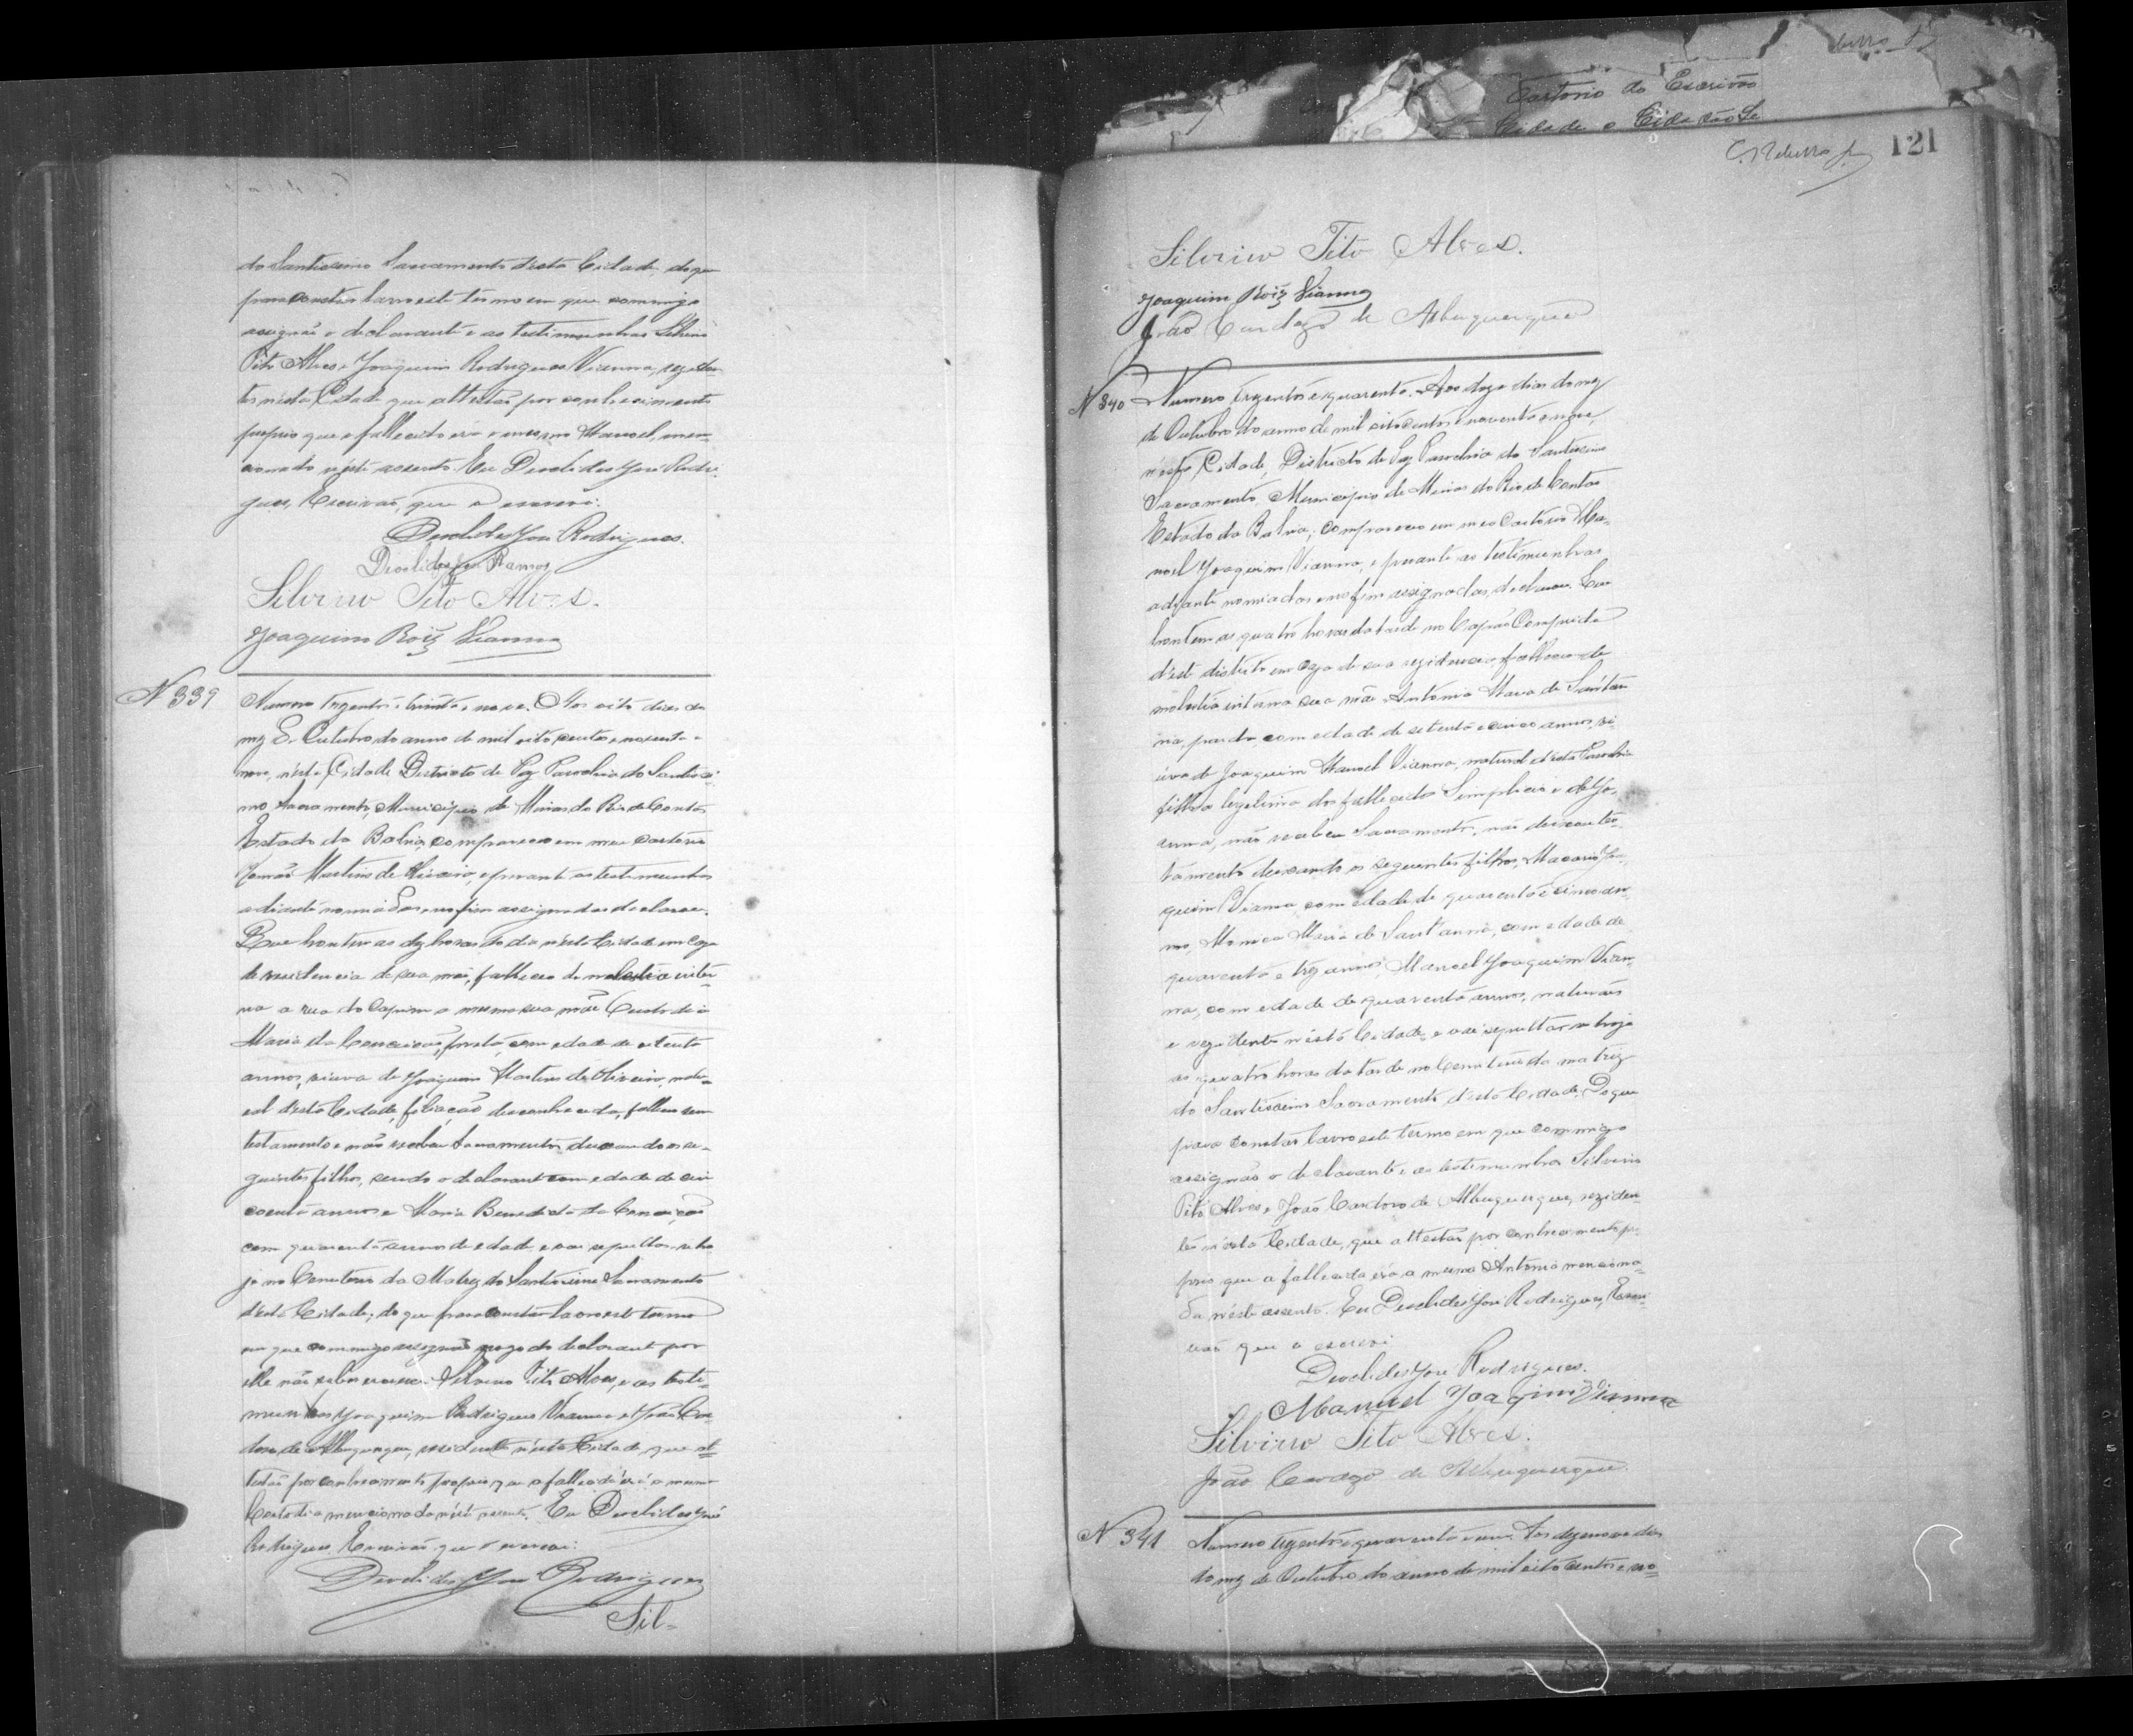 do Santissimo Sacramento desta Cidade do que
para constar lavro este termo em que commigo
assignão o declarante e as testimunhas Silvino
Tito Alves e Joaquim Rodrigues Vianna, reziden-
tes nesta Cidade que attestão por conhecimento
proprio que o fallecido era o mesmo Manoel men-
cionado nẽste assento. Eu Deoclides José Rodri-
gues, Escrivão, que o escrevi.
Deoclides José Rodrigues.
Deoclides José Ramos
Silvino Tito Alves.
Joaquim Roiz Vianna
N 339
Numero trezentos e trinta e nove. Aos oito dias do
mez de Outubro do anno de mil oito centos e noventa e
nove, nésta Cidade Districto de Paz Parochia do Santissi-
mo Sacramento, Municipio de Minas do Rio de Contas
Estado da Bahia, compareceo em meu cartorio
Martins de Oliveira, e perante as testemunhas
adiante nomiadas e no fim assignadas declarou.
Que hontem as dez horas do dia nésta Cidade em caza
de residencia de sua mãi, falleceo de molestia inter-
na a rua do a mesma sua mãe Custodia
Maria da Conceição, preta, com edade de oitenta
annos, viuva de Joaquim Martins de Oliveira, natu-
ral desta Cidade, filiação desconhecida, falleceu sem
testamento e não recebeu Sacramentos deixando os se-
guintes filhos, sendo o declarante com edade de cin-
coenta annos e Maria Benedicta da Conceição
com quarenta annos de edade, e vai sepultar-se ho-
je no Cemiterio da Matriz do Santissimo Sacramento
desta Cidade; do que para constar lavro este termo
em que commigo assigna a rogo do declarante por
elle não saber escrever Silvino Tito Alves, e as teste-
munhas Joaquim Rodrigues Vianna e João Car-
dozo de Albuquerque, rezidente nésta Cidade, que at-
testão por conhecimento proprio que a fallecida era a mesma
Custodia mencionada nést assento. Eu Deoclides José
Rodrigues, Escrivão que o escrevi.
Deoclides José Rodrigues
Sil-
Cartorio do Escrivão
Cidade e Cidadão
121
Silvino Tito Alves.
Joaquim Roiz Vianna
João Cardozo de Albuquerque
N 340
Numero trezentos e quarenta. Aos doze dias do mez
de Outubro do anno de mil oitocentos e noventa e nove,
nésta Cidade, Districto de Paz Parochia do Santissimo
Sacramento, Municipio de Minas do Rio de Contas
Estado da Bahia, compareceo em meu Cartorio Ma-
noel Joaquim Vianna, e perante as testimunhas
adiante nomiadas e no fim assignadas, declarou. Que
hontem as quatro horas da tarde no Capão Comprido
d'este districto em caza de sua rezidencia falleceo de
molestia interna sua mãe Antonia Maria de Santan-
na, parda com edade de setenta e cinco annos, vi-
uva de Joaquim Manoel Vianna, natural desta Parochia
filha legitima dos fallecidos Simplicio e de Jo-
anna, não recebeu Sacramentos, não deixou tes-
tamento deixando os seguintes filhos, Macario Joa-
quim Vianna, com edade de quarenta e cinco an-
nos, Monica Maria de Sant'anna, com edade de
quarenta e trez annos, Manoel Joaquim Vian-
na, com edade de quarenta annos, naturáes
e rezidente nésta Cidade, e vae sepultar-se hoje
as quatro horas da tarde no Cemiterio da matriz
do Santissimo Sacramento, d'esta Cidade. Do que
para constar lavro este termo em que commigo
assignão o declarante e as testimunhas Silvino
Tito Alves e João Cardozo de Albuquerque, reziden-
tes nésta Cidade, que attestão por conhecimento pro-
prio que a fallecida era a mesma Antonia menciona-
da néste assento. Eu Deoclides José Rodrigues, Escri-
vão que o escrevi
Deoclides José Rodrigues.
Manuel Joaquim Vianna
Silvino Tito Alves.
João Cardozo de Albuquerque.
N 341
Numero trezentos e quarenta e um. Aos dezenove dias
do mez de Outubro do anno de mil oito centos e no-